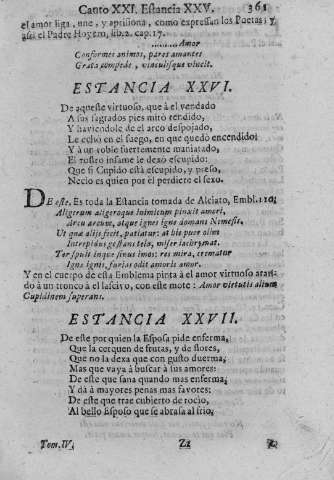 Canto XXI. Estancia XXV. 361
el amor liga, une, y aprisiona, como expressan los Poetas: y
assi el Padre Hoyem, lib.2. cap.17.
.......... Amor
Conformes animos, pares amantes
Grata compede, vinculisque vincit.
ESTANCIA XXVI.
De aqueste virtuoso, que à el vendado
A sus sagrados pies mirò rendido,
Y haviendole de el arco despojado,
Le echò en el fuego, en que quedò encendido:
Y à un roble fuertemente maniatado,
El rostro infame le dexò escupido:
Que si Cupido està escupido, y preso,
Necio es quien por èl perdiere el seso.
DE este. Es toda la Estancia tomada de Alciato, Embl.110:
Aligerum aligeroque inimicum pinxit amori,
Arcu arcum, atque ignes igne domans Nemesis.
Ut quæ alijs fecit, patiatur: at hic puer olim
Intrepidus gestans tela, miser lachrymat.
Ter spuit inque sinus imos: res mira, crematur
Igne ignis, furias odit amoris amor.
Y en el cuerpo de esta Emblema pinta à el amor virtuoso atan-
do à un tronco à el lascivo, con este mote: Amor virtutis alium
Cupidinem superans.
ESTANCIA XXVII.
De este por quien la Esposa pide enferma,
Que la cerquen de frutas, y de flores,
Que no la dexa que con gusto duerma,
Mas que vaya à buscar à sus amores:
De este que sana quando mas enferma,
Y dà à mayores penas mas favores:
De este que trae cubierto de rocio,
Al bello Esposo que se abrasa al frio.
Tom. IV. Zz